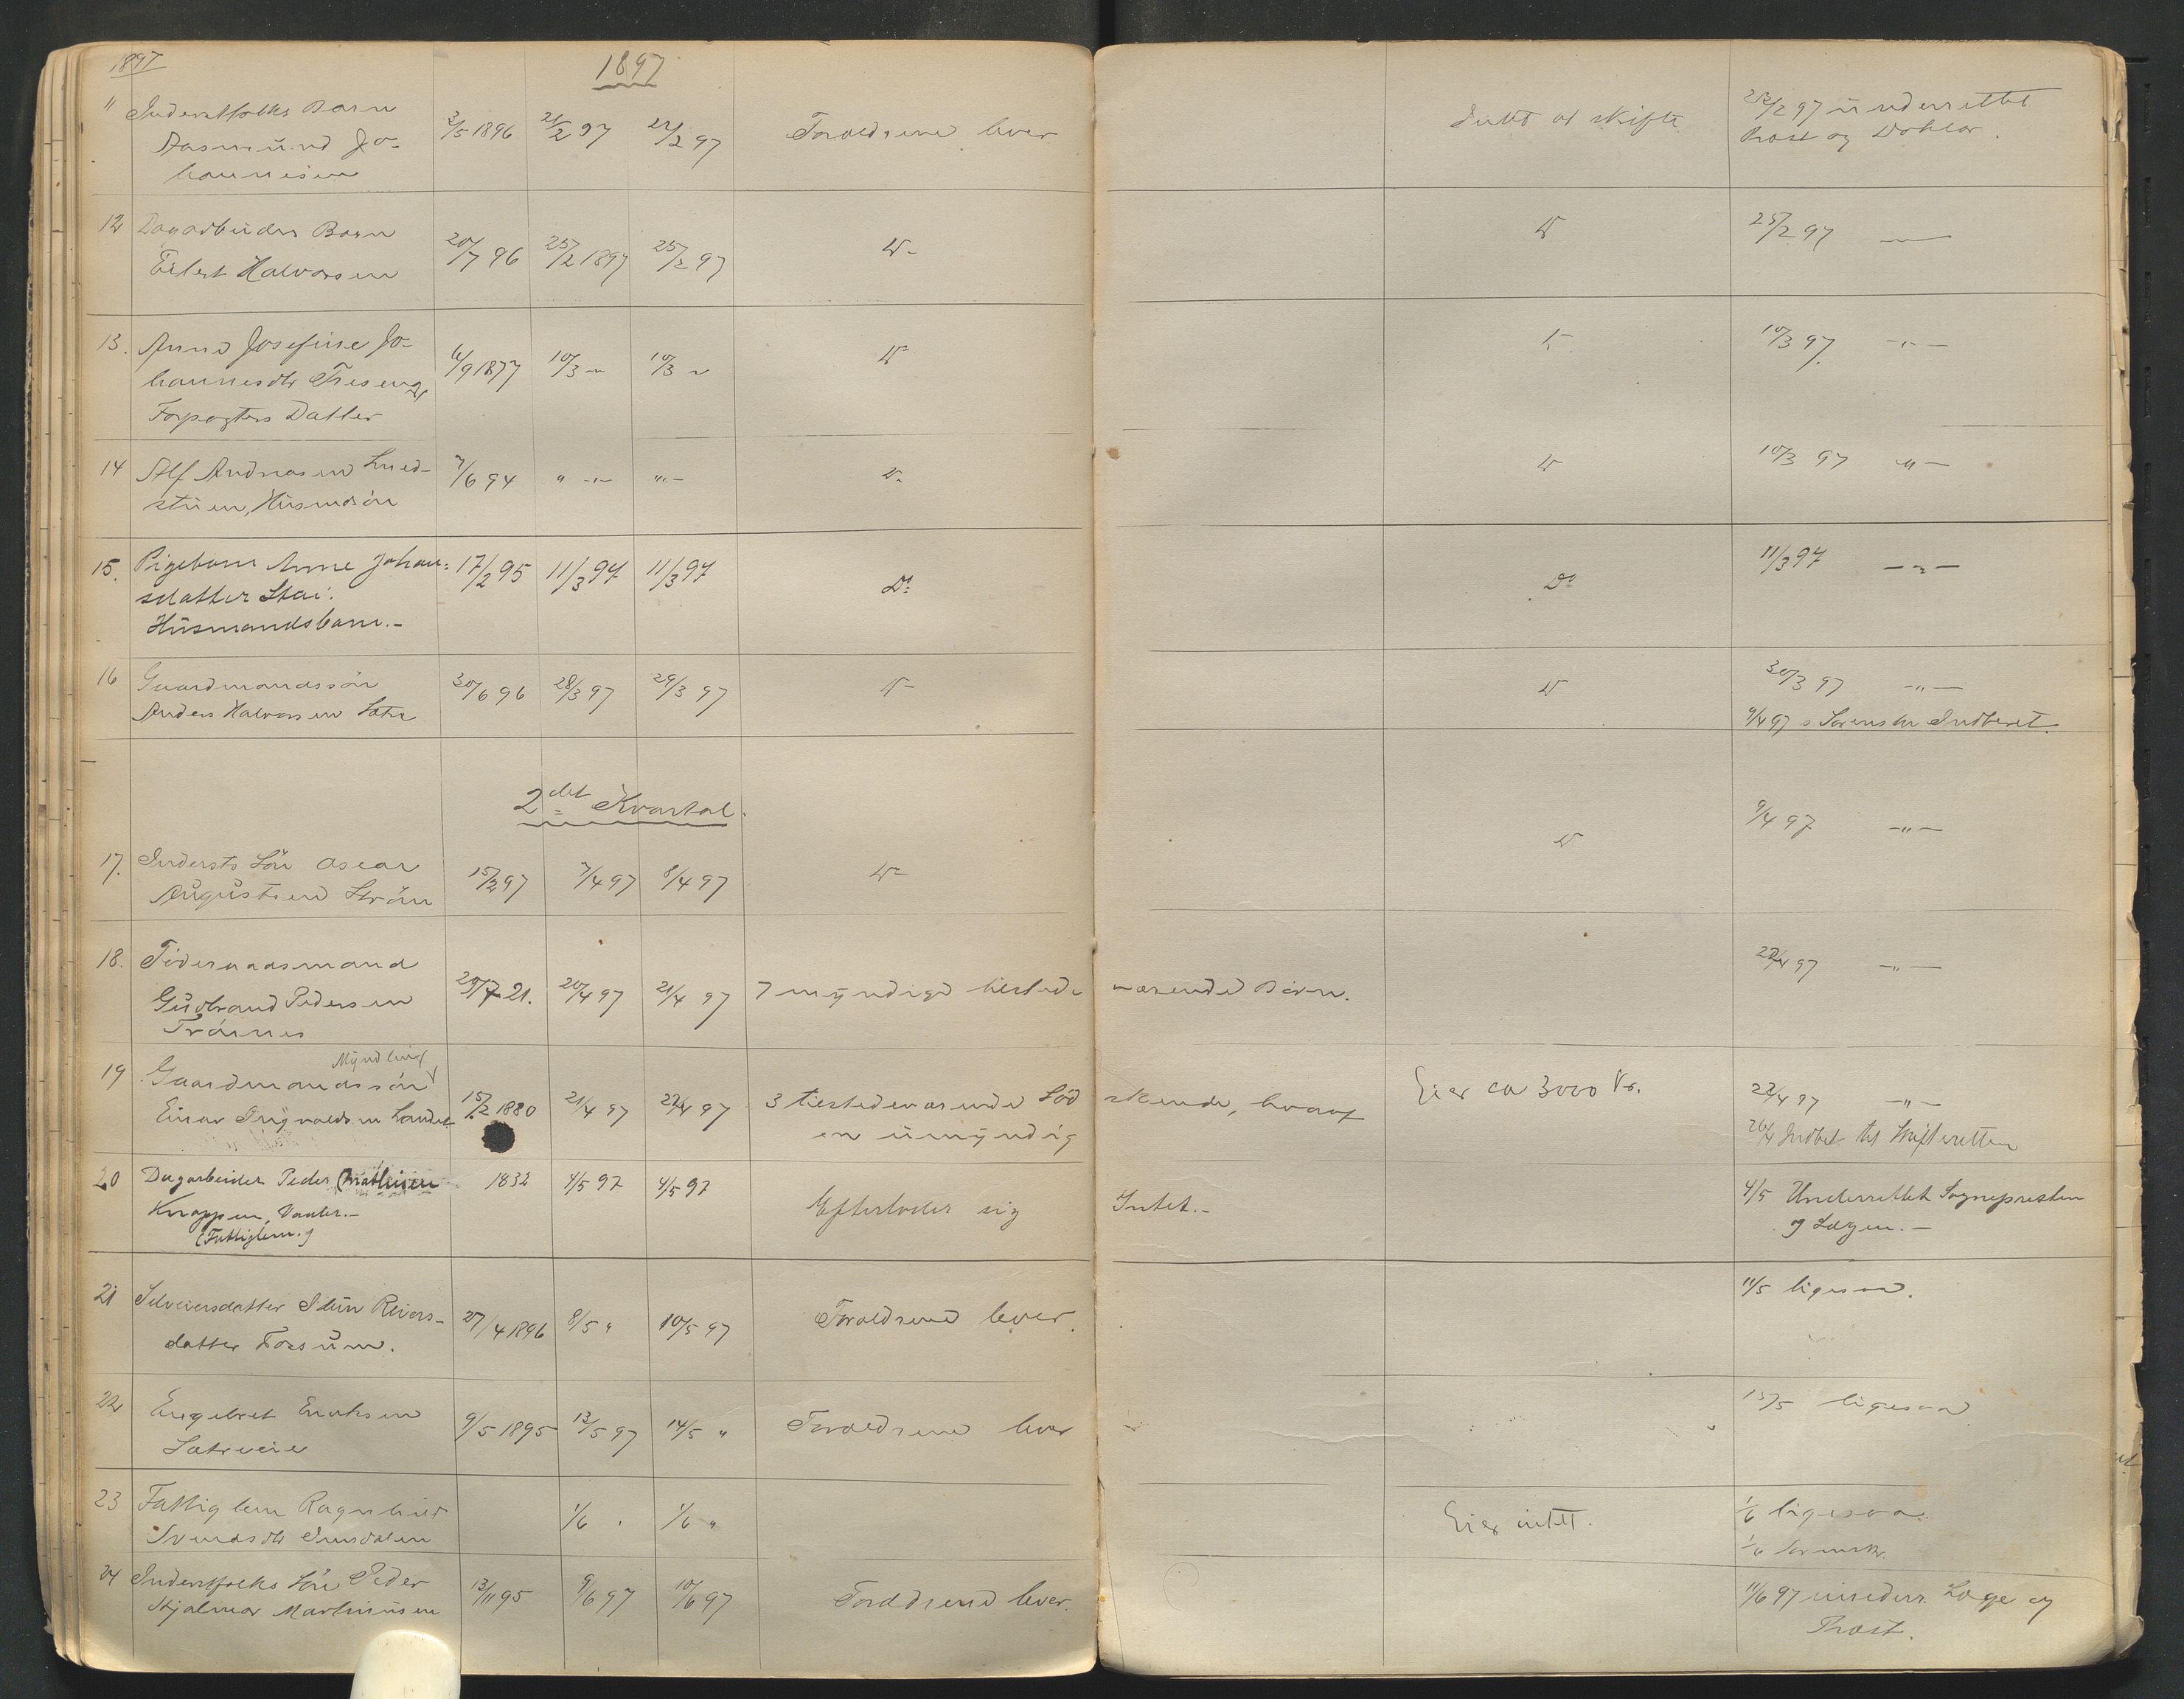 1897
1897
11 Inderstfolks Barn 3/5 1896 21/2 97 22/2 97 Forældrene lever Intet at skifte 23/2 97 underrettet
Aasmund Jo- Præst og Doktor.
hannesen
12 Dagarbeiders Barn 20/7 96 25/2 1897 25/2 97 Do Do 25/2 97 —
Eilert Halvorsen
13. Anne Josefine Jo- 6/9 1877 10/3 — 10/3 — Do Do 10/3 97. — " —
hannesdtr
Forpagters Datter
14 Alf Andreasen 7/6 94 " — " — " — Do Do 10/3 97 — " —
stuen, Husmdsön
15. Pigebarn Anne Johan- 17/2 95 11/3 97 11/3 97 Do Do 11/3 97 — " —
sdatter Stai.
Husmandsbarn.-
16 Gaardmandssön 30/6 96 28/3 97 29/3 97 Do Do 30/3 97 — " —
Anders Halvorsen Sætre 9/4 97 Indberet.
2det Kvartal.
9/4 97 — " —
17. Indersts Sön Oscar 15/3 97 7/4 97 8/4 97 Do Do
Augustsen Ström
18. Föderaadsmand 22/4 97 — " —
Gudbrand Pedersen 29/7 21. 20/4 97 21/4 97 7 myndige tilstede værende Börn.
Trönnes
Myndling
19 Gaardmandssön 15/2 1880 21/4 97 22/4 97 3 tilstedeværende Söd skende, hvoraf Eier ca 3000 Kr. 22/4 97 — " —
Einar en umyndig 26/4 Indbet. til Skifteretten
20 Dagarbeider Peder Mathisen 1832 4/5 97 4/5 97 Efterlader sig Intet.- 4/5 Underrettet Sognepresten
Knappen, Vaaler.- og Lægen.-
(Fattiglem.)
21 Selveiersdatter Reiers- 27/4 1896 8/5 " 10/5 97 Forældrene lever. 11/5 ligesaa.
datter Fossum.
22 Engebret Eriksen 9/5 1895 13/5 97 14/5 " Forældrene lever 15/5 ligesaa
Sætreeie
23 Fattiglem Ragnhild 1/6 " 1/6 " Eier intet. 1/6 ligesaa.
Svendsdtr 1/6
24 Inderstfolks Sön Peder 13/11 95 9/6 97 10/6 97 Forældrene lever. 11/6 97 underr. Læge og
Hjalmar Martinusen Præst.